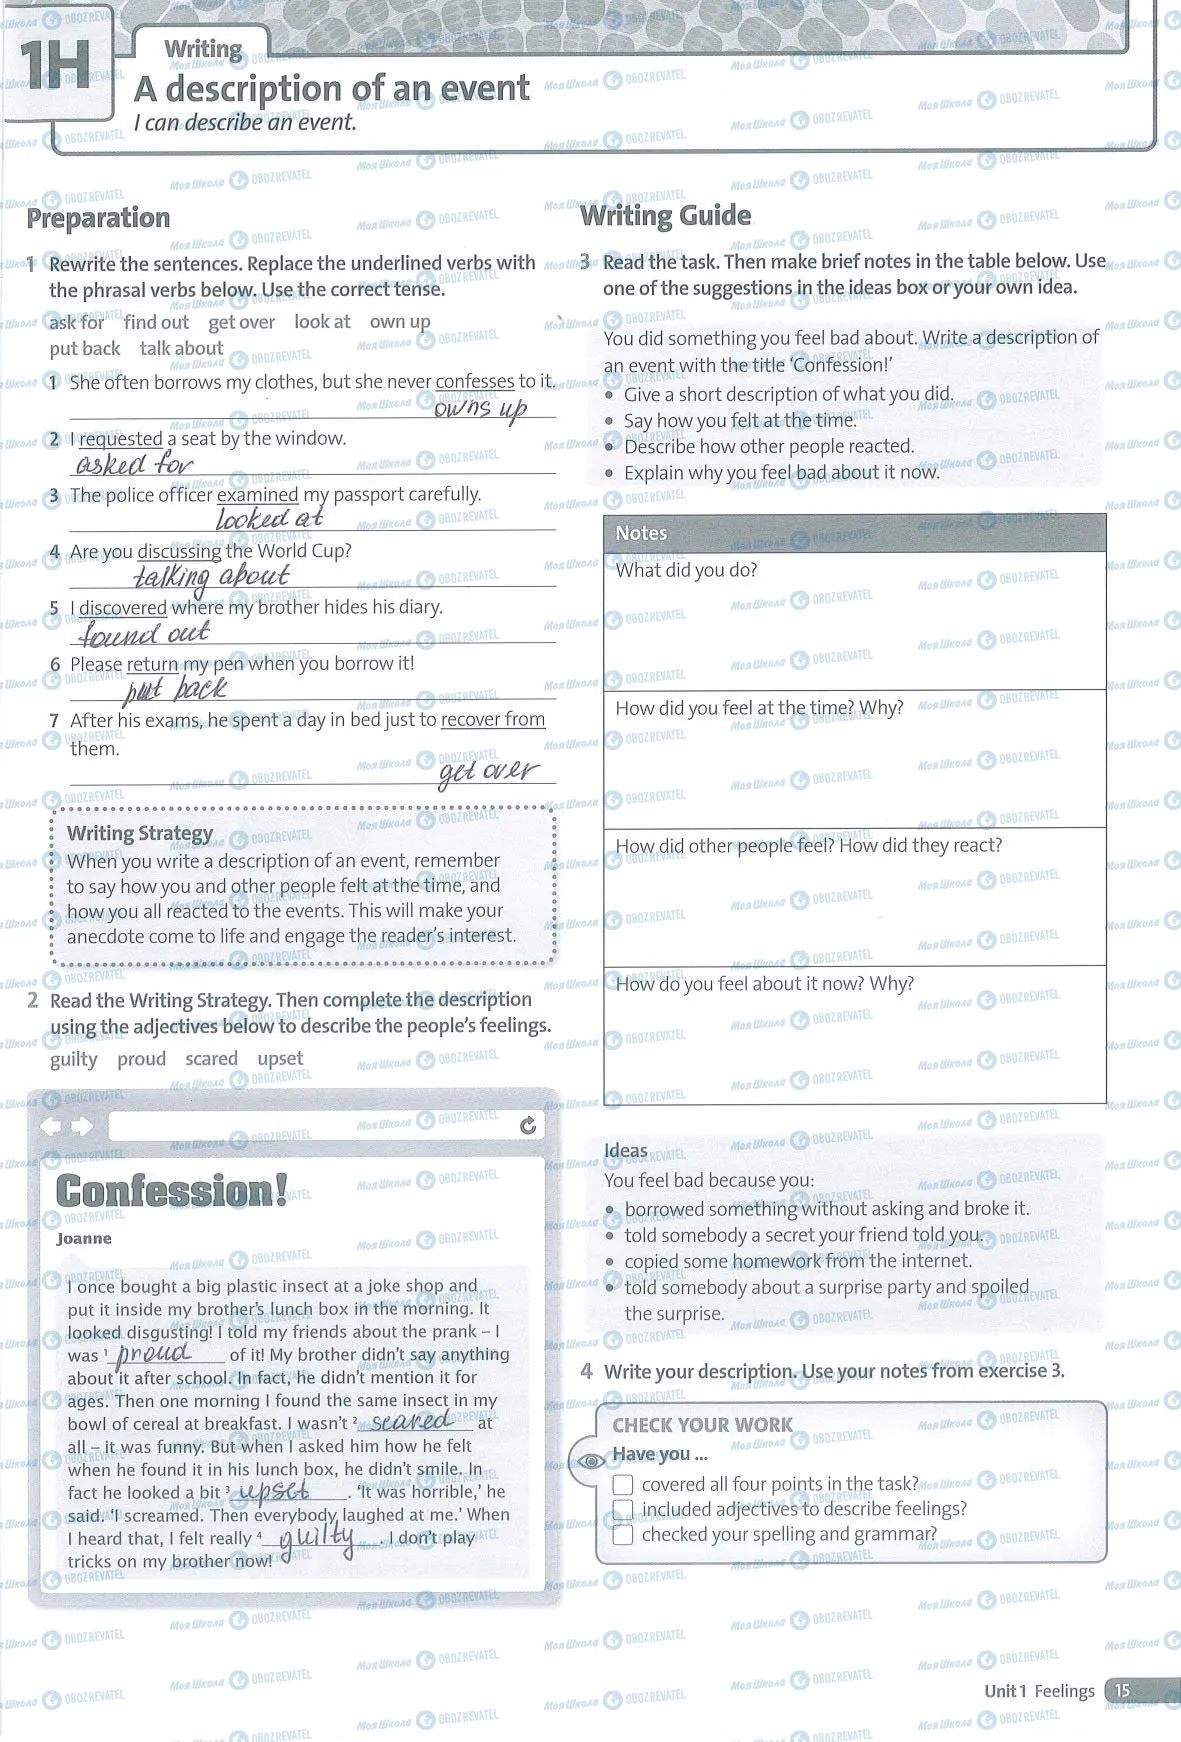 1H
Writing
A description of an event
I can describe an event.
Preparation
1 Rewrite the sentences. Replace the underlined verbs with
the phrasal verbs below. Use the correct tense.
ask for find out get over look at own up
put back talk about
1 She often borrows my clothes, but she never confesses to it.
owns up
2 I requested a seat by the window.
asked for
3 The police officer examined my passport carefully.
looked at
4 Are you discussing the World Cup?
talking about
5 I discovered where my brother hides his diary.
found out
6 Please return my pen when you borrow it!
put back
7 After his exams, he spent a day in bed just to recover from
them.
get over
Writing Strategy
When you write a description of an event, remember
to say how you and other people felt at the time, and
how you all reacted to the events. This will make your
anecdote come to life and engage the reader's interest.
2 Read the Writing Strategy. Then complete the description
using the adjectives below to describe the people's feelings.
guilty proud scared upset
Confession!
Joanne
I once bought a big plastic insect at a joke shop and
put it inside my brother's lunch box in the morning. It
looked disgusting! I told my friends about the prank – I
was 1 proud of it! My brother didn't say anything
about it after school. In fact, he didn't mention it for
ages. Then one morning I found the same insect in my
bowl of cereal at breakfast. I wasn't 2 scared at
all – it was funny. But when I asked him how he felt
when he found it in his lunch box, he didn't smile. In
fact he looked a bit 3 upset . 'It was horrible,' he
said. 'I screamed. Then everybody laughed at me.' When
I heard that, I felt really 4 guilty . I don't play
tricks on my brother now!
Writing Guide
3 Read the task. Then make brief notes in the table below. Use
one of the suggestions in the ideas box or your own idea.
You did something you feel bad about. Write a description of
an event with the title 'Confession!'
• Give a short description of what you did.
• Say how you felt at the time.
• Describe how other people reacted.
• Explain why you feel bad about it now.
Notes
What did you do?
How did you feel at the time? Why?
How did other people feel? How did they react?
How do you feel about it now? Why?
Ideas
You feel bad because you:
• borrowed something without asking and broke it.
• told somebody a secret your friend told you.
• copied some homework from the internet.
• told somebody about a surprise party and spoiled
the surprise.
4 Write your description. Use your notes from exercise 3.
CHECK YOUR WORK
Have you ...
covered all four points in the task?
included adjectives to describe feelings?
checked your spelling and grammar?
Unit 1 Feelings 15
Моя Школа OBOZREVATEL